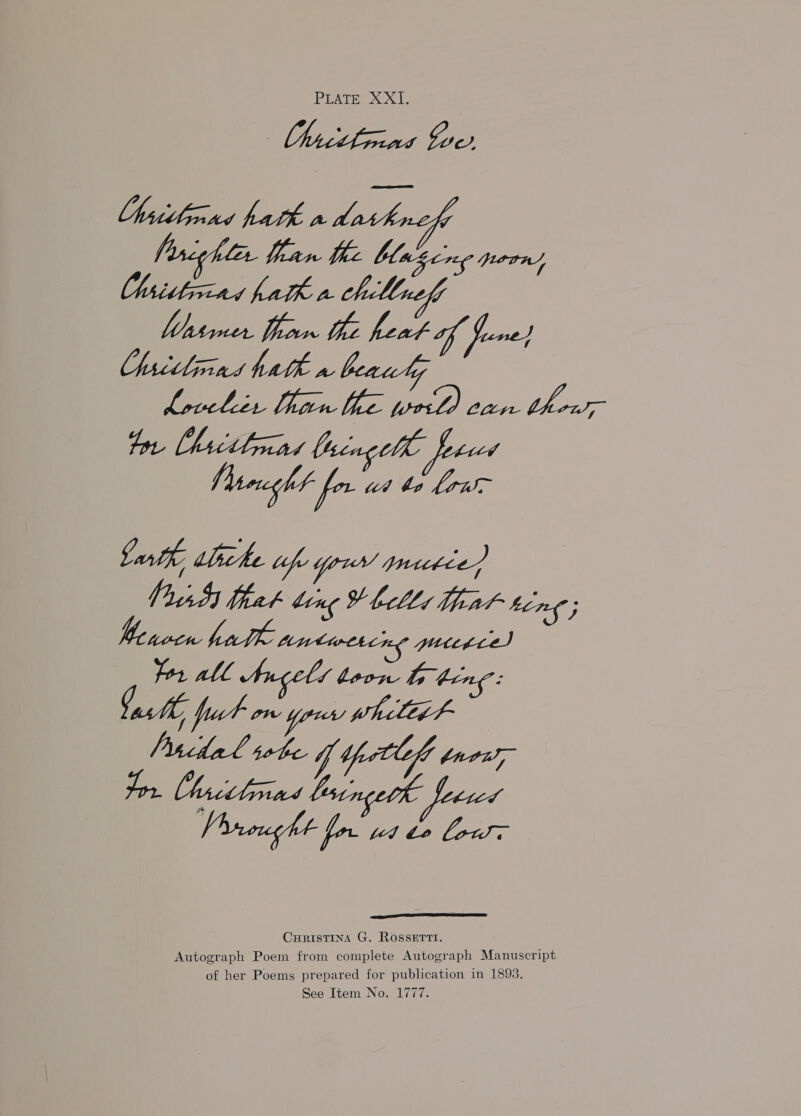 PLATE XXI.
Christmas Eve.
Christmas hath a darkness
Brighter than the blazing noon,
Christmas hath a chillness
Warmer than the heat of June,
Christmas hath a beauty
Lovelier than the world can show,
For Christmas bringeth Jesus
Brought for us so low.
Earth, strike up your music,
Birds that sing & bells that ring;
Heaven hath answering music
For all Angels soon to sing:
Earth, put on your whitest
Bridal robe of spotless snow,
For Christmas bringeth Jesus
Brought for us so low.
CHRISTINA G. ROSSETTI.
Autograph Poem from complete Autograph Manuscript
of her Poems prepared for publication in 1893.
See Item No. 1777.